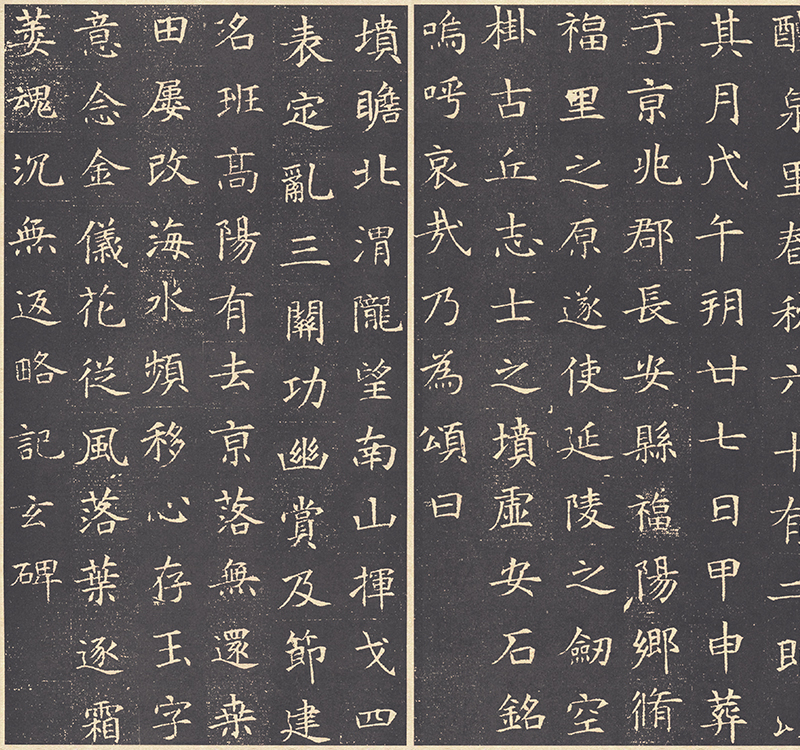 醴泉里春秋六十有二即以
其月戊午朔廿七日甲申葬
于京兆郡長安縣福陽鄉脩
福里之原遂使延陵之劒空
掛古丘志士之墳虛安石銘
嗚呼哀哉乃為頌曰
墳瞻北渭隴望南山揮戈四
表定亂三關功幽賞及節建
名班髙陽有去京落無還桒
田屢改海水頻移心存玉字
意念金儀花從風落葉逐霜
萎魂沉無返略記玄碑